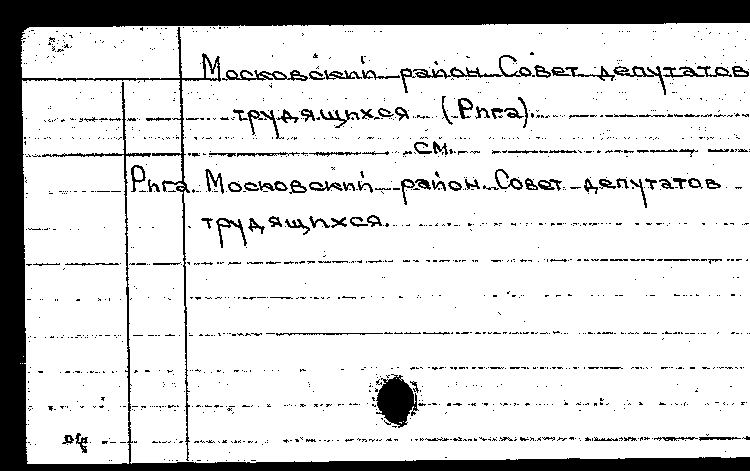 Московский район. Совет депутатов
трудящихся (Рига).
см.
Рига. Московский район. Совет депутатов
трудящихся.